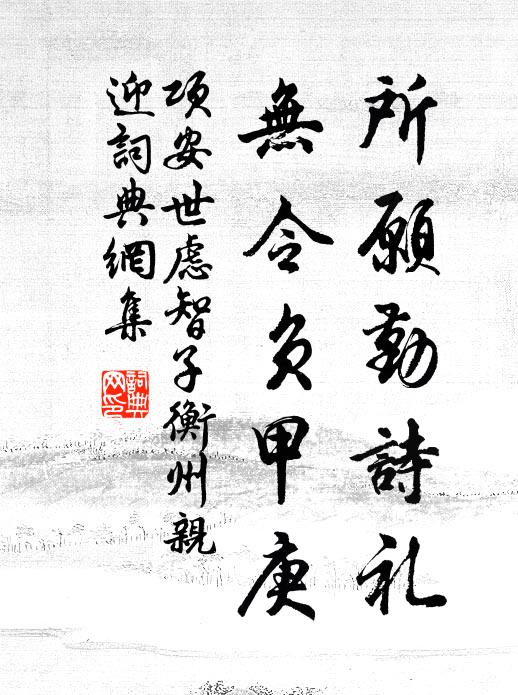 所願勤詩礼
無令負甲庚
項安世慮智子衡州親
迎詞典網集
詞典
网印